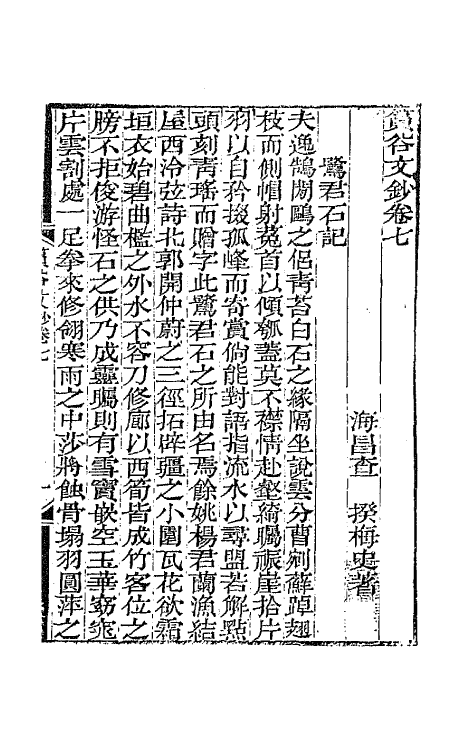 篔谷文鈔卷七
海昌查　揆梅史著
鷺君石記
夫逸鵠閒鷗之侶青苔白石之緣隔坐說雲分曹剜蘚踔翹
枝而側帽射菟首以傾瓠蓋莫不襟情赴壑綺矚振崖拾片
羽以自矜掇孤峰而寄賞倘能對語指流水以尋盟若解點
頭刻青瑤而贈字此鷺君石之所由名焉餘姚楊君蘭漁結
屋西泠弦詩北郭開仲蔚之三徑拓辟疆之小園瓦花欲霜
垣衣始碧曲檻之外水不容刀修廊以西筍皆成竹客位之
牓不拒俊游怪石之供乃成靈矚則有雪竇嵌空玉華窈窕
片雲割處一足拳來修翎寒雨之中莎將蝕骨塌羽圓萍之
篔谷文鈔卷七
一